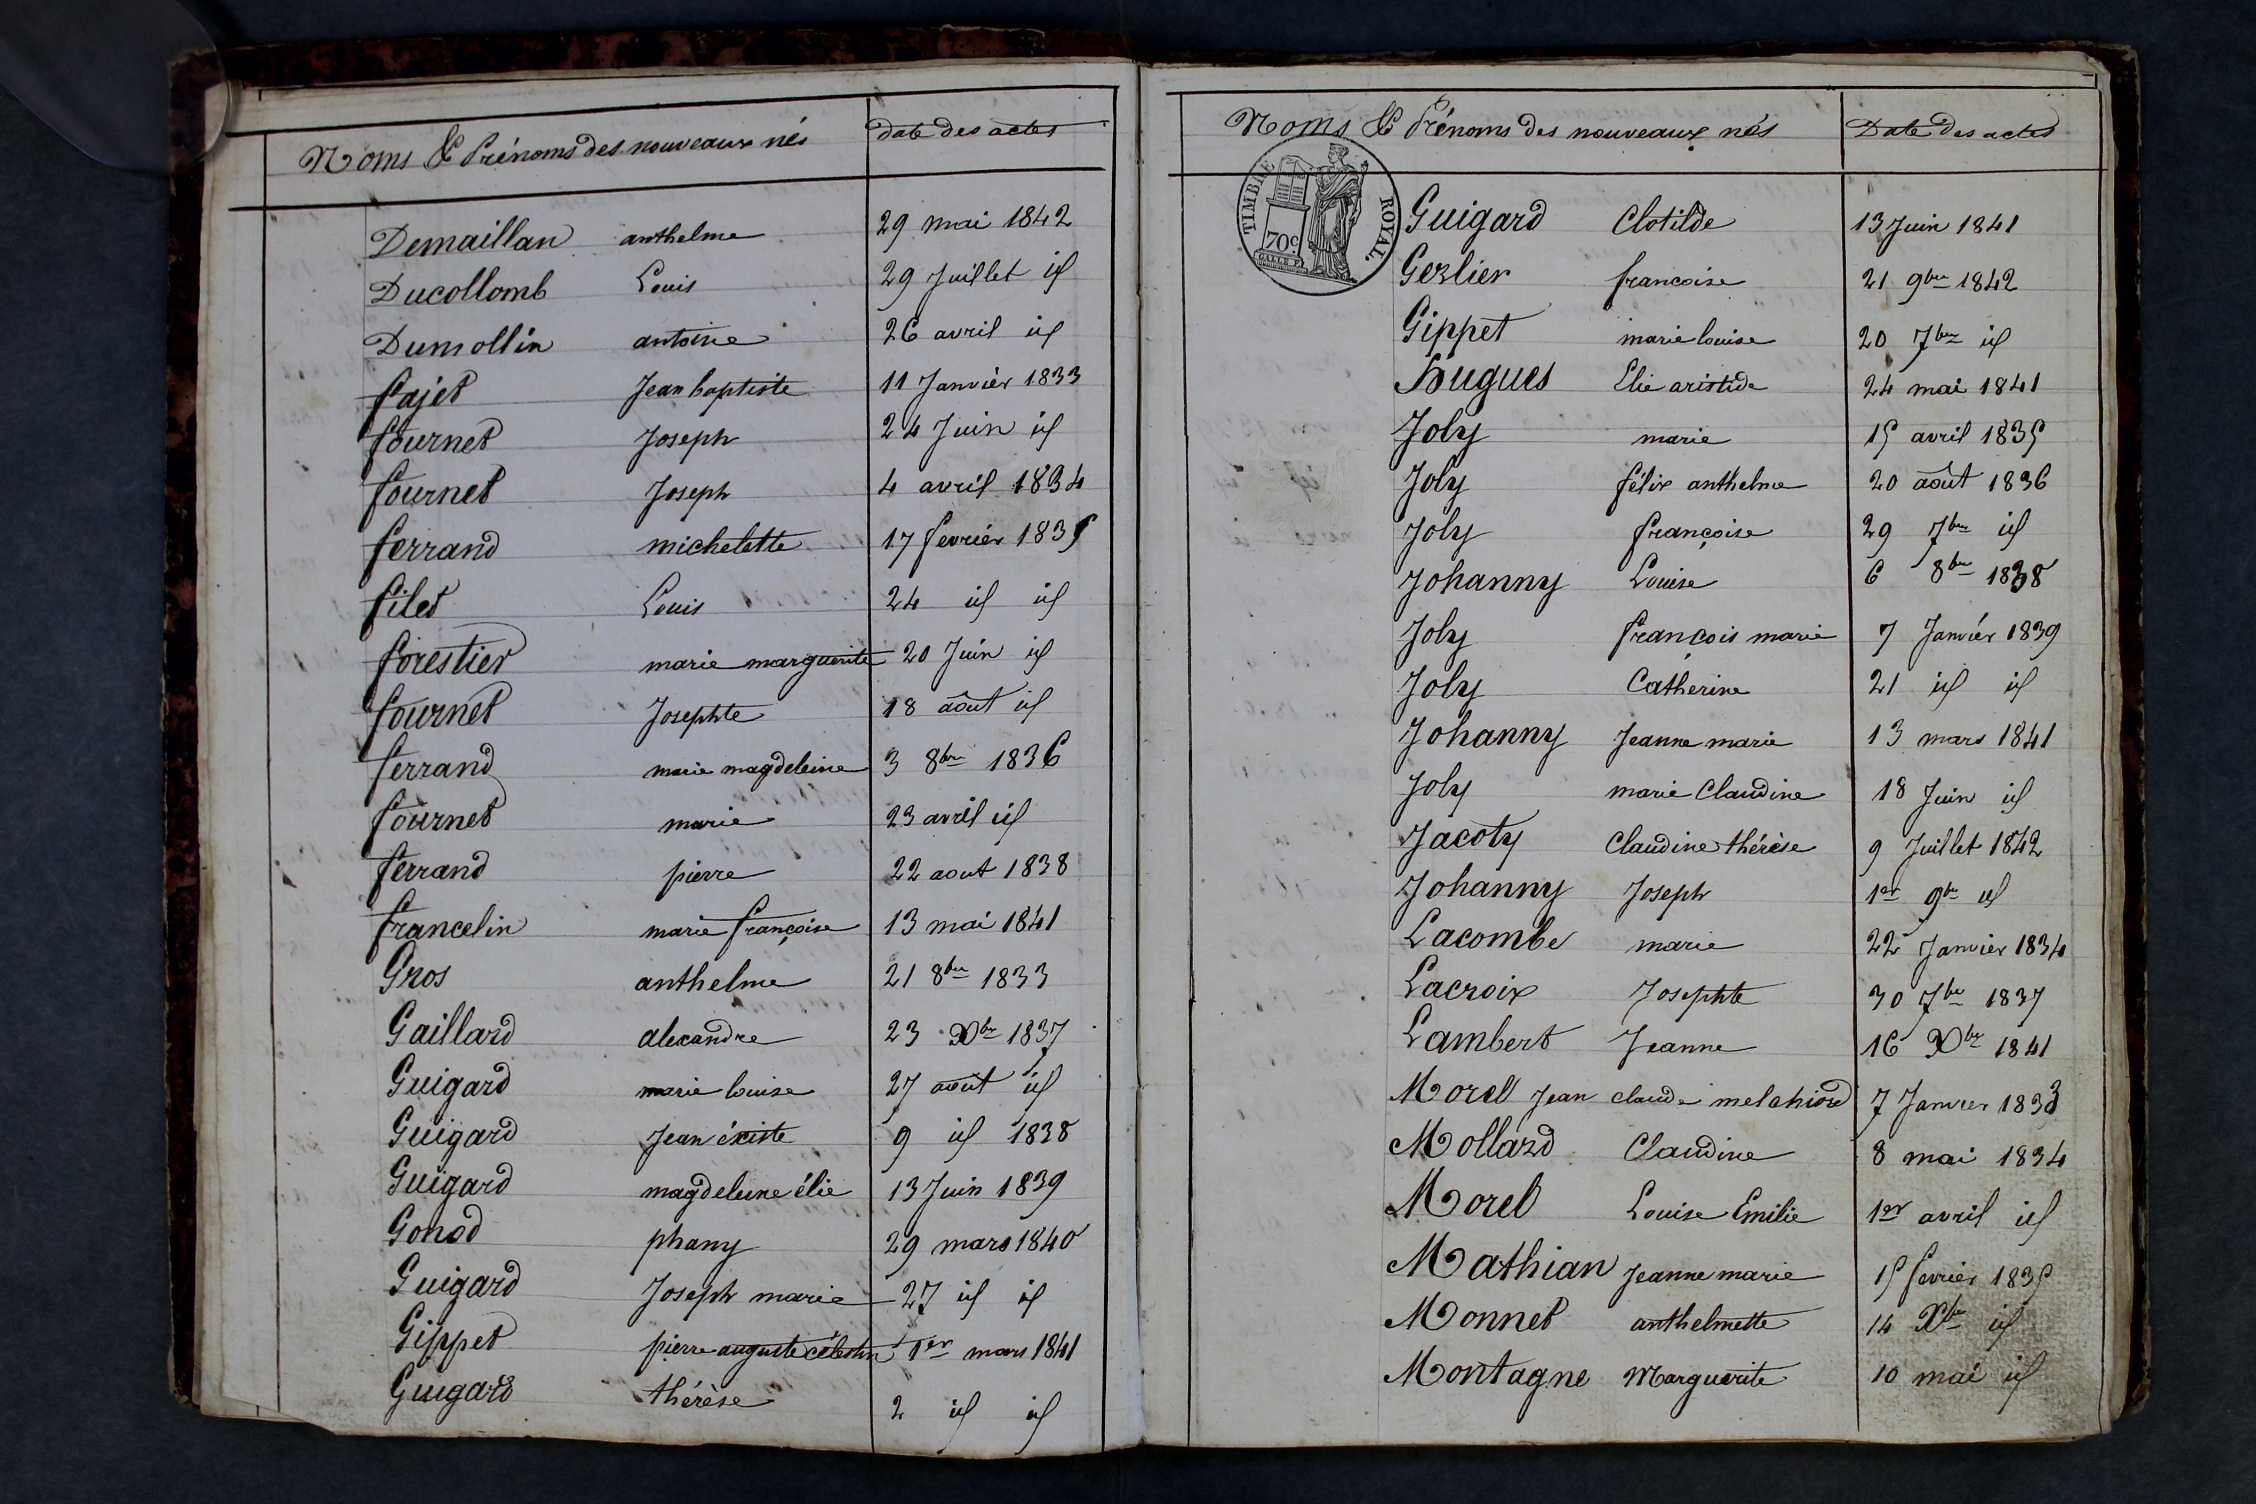 Noms & Prénoms des nouveaux nés date des actes
Demaillan anthelme 29 mai 1842
Ducollomb Louis 29 Juillet id
Dumollin antoine 26 avril id
fajet Jean baptiste 11 Janvier 1833
fournet Joseph 24 Juin id
fournet Joseph 4 avril 1834
ferrand michelette 17 fevrier 1835
filet Louis 24 id id
forestier marie marguerite 20 Juin id
fournet Josephte 18 août id
ferrand marie magdeleine 3 8bre 1836
fournet marie 23 avril id
ferrand pierre 22 aout 1838
francelin marie françoise 13 mai 1841
Gros anthelme 21 8bre 1833
Gaillard alexandre 23 Xbre 1837
Guigard marie louise 27 août id
Guigard Jean éxiste 9 id 1838
Guigard magdeleine élie 13 Juin 1839
Gonod phany 29 mars 1840
Guigard Joseph marie 27 id id
Gippet pierre auguste célestin 1er mars 1841
Guigard thérèse 2 id id
Noms & Prénoms des nouveaux nés Date des actes
TIMBRE ROYAL.
70c
Guigard Clotilde 13 Juin 1841
Gerlier francoise 21 9bre 1842
Gippet marie louise 20 7bre id
Hugues Elie aristide 24 mai 1841
Joly marie 15 avril 1835
Joly félix anthelme 20 août 1836
Joly françoise 29 7bre id
Johanny Louise 6 8bre 1838
Joly françois marie 7 Janvier 1839
Joly Catherine 21 id id
Johanny Jeanne marie 13 mars 1841
Joly marie Claudine 18 Juin id
Jacoty Claudine thérèse 9 Juillet 1842
Johanny Joseph 1er 9bre id
Lacombe marie 22 Janvier 1834
Lacroix Josephte 30 7bre 1837
Lambert Jeanne 16 Xbre 1841
Morel Jean claude melchiord 7 Janvier 1833
Mollard Claudine 8 mai 1834
Morel Louise Emilie 1er avril id
Mathian Jeanne marie 15 fevrier 1835
Monnet anthelmette 14 Xbre id
Montagne Marguerite 10 mai id